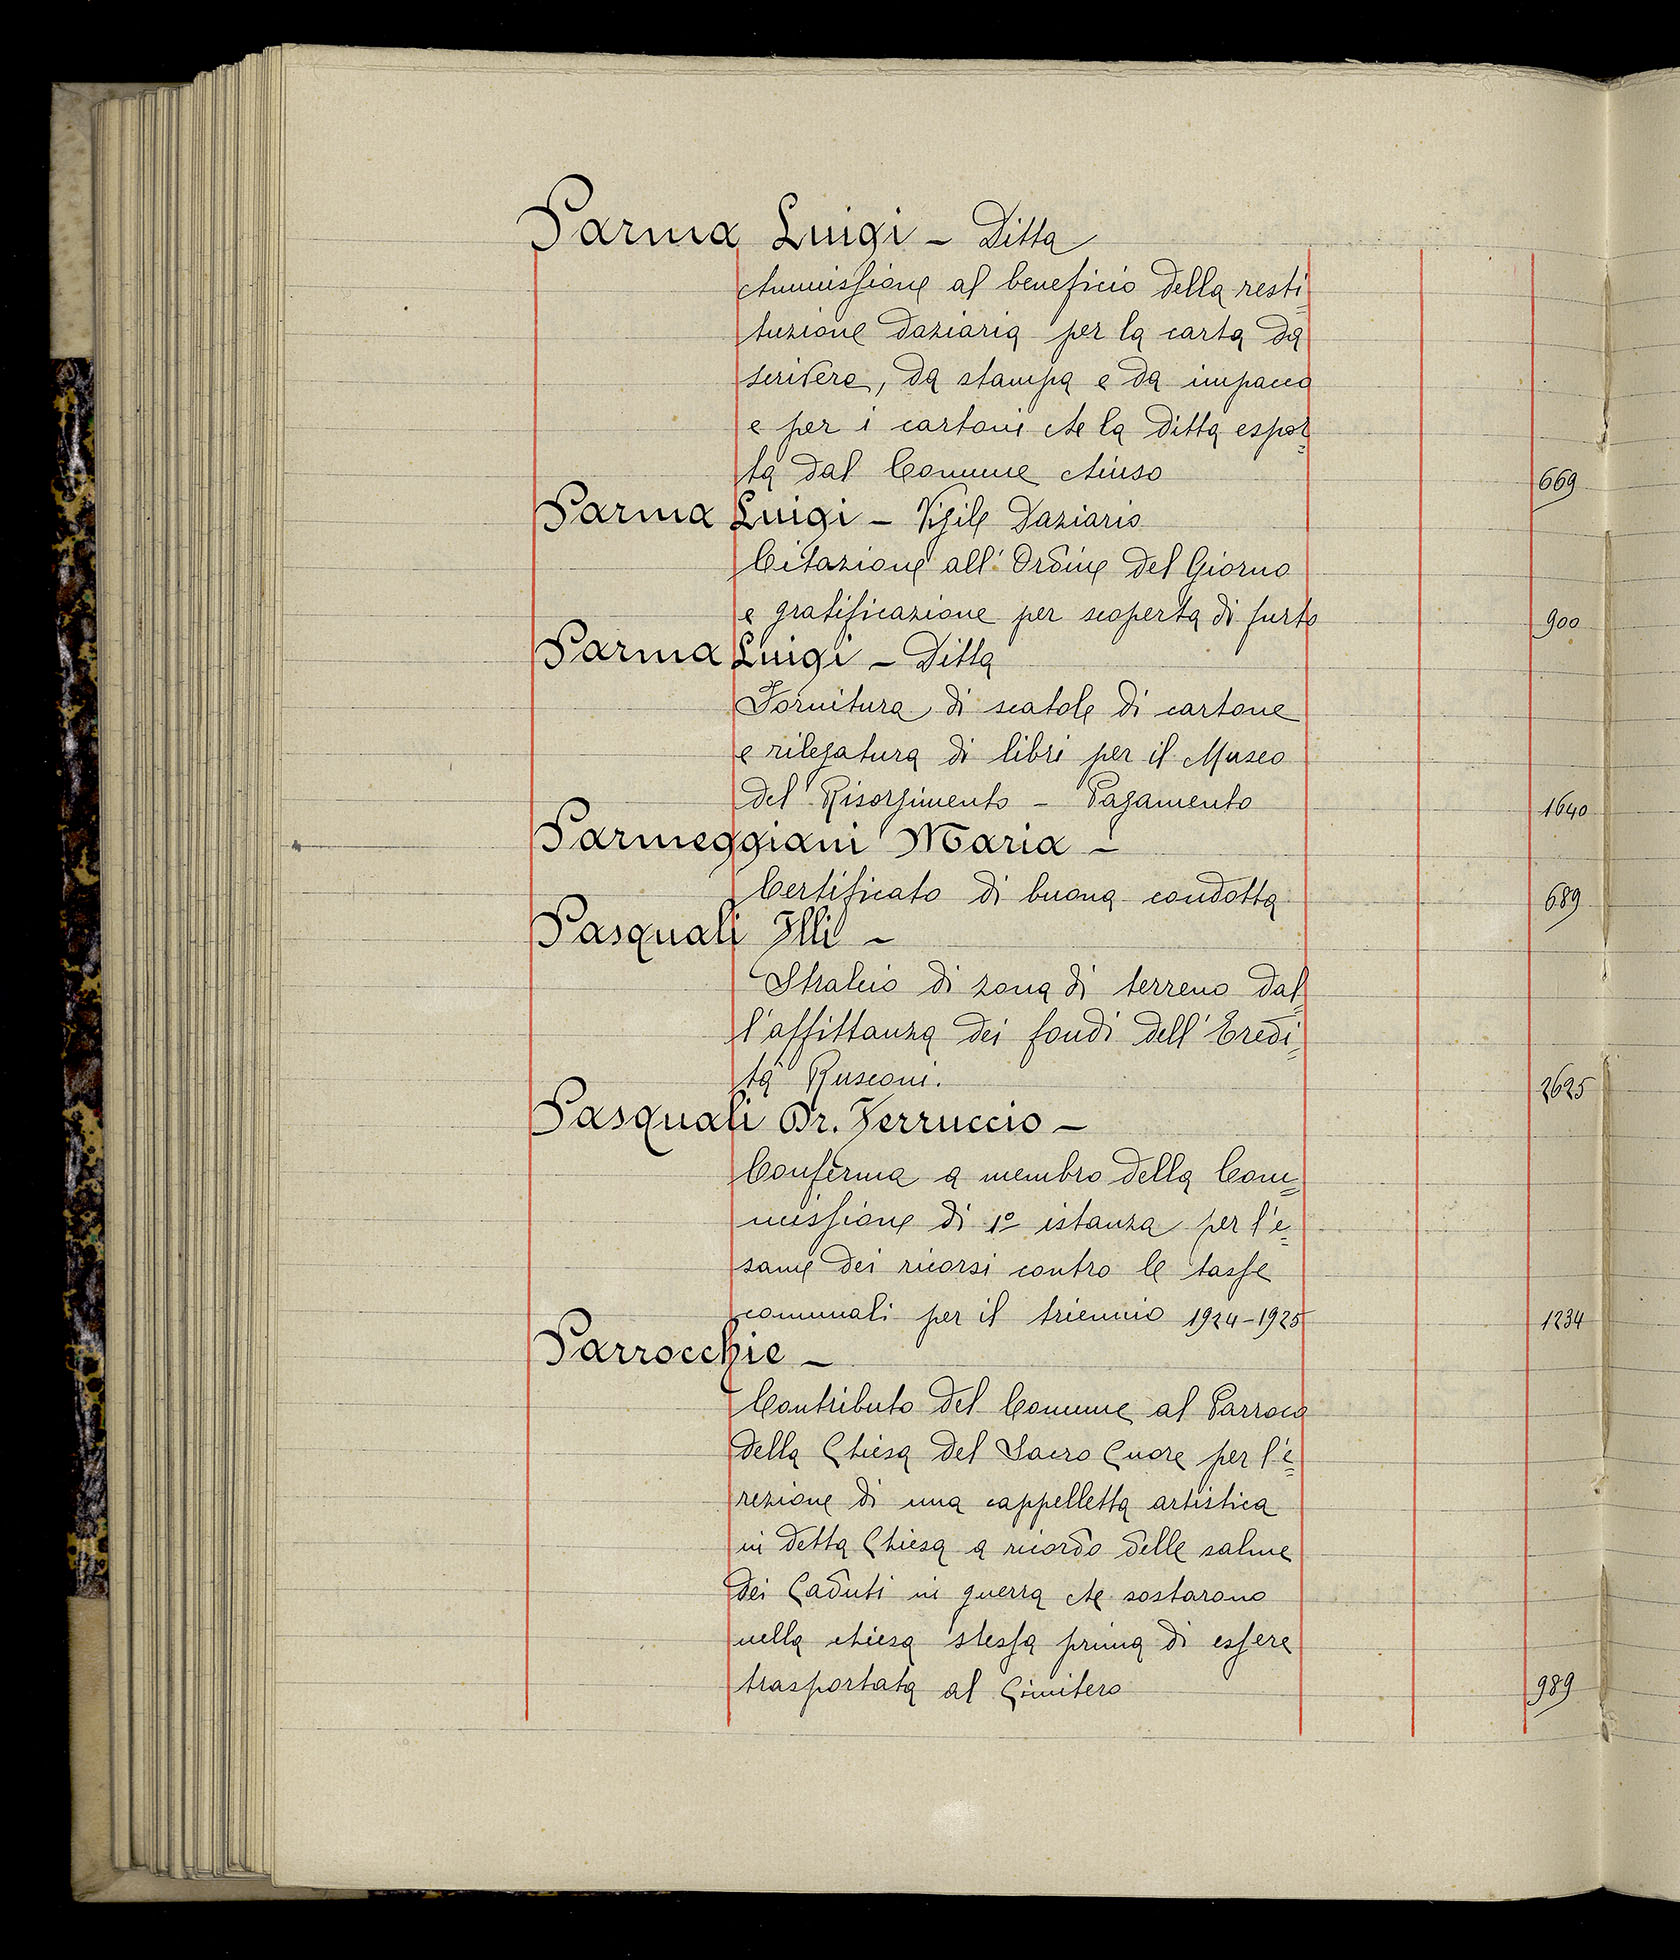 Parma Luigi – Ditta
Ammissione al beneficio della resti=
tuzione daziaria per la carta da
scrivere, da stampa e da impacco
e per i cartoni che la Ditta espor=
ta dal Comune chiuso 669
Parma Luigi – Vigile Daziario
Citazione all'Ordine del Giorno
e gratificazione per scoperta di furto 900
Parma Luigi – Ditta
Fornitura di scatole di cartone
e rilegatura di libri per il Museo
del Risorgimento – Pagamento 1640
Parmeggiani Maria –
Certificato di buona condotta 689
Pasquali Flli –
Stralcio di zona di terreno dal=
l'affittanza dei fondi dell'Eredi=
tà Rusconi. 2625
Pasquali Dr. Ferruccio –
Conferma a membro della Com=
missione di 1º istanza per l'e=
same dei ricorsi contro le tasse
comunali per il triennio 1924-1925 1234
Parrocchie –
Contributo del Comune al Parroco
della Chiesa del Sacro Cuore per l'e=
rezione di una cappelletta artistica
in detta Chiesa a ricordo delle salme
dei Caduti in guerra che sostarono
nella chiesa stessa prima di essere
trasportata al Cimitero 989